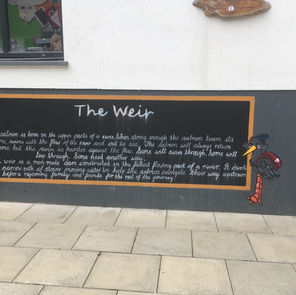 The Weir
salmon is born in the upper parts of a river. When strong enough the salmon leaves its
swims with the flow of the river and out to sea. The salmon will always return
home but the swim is harder against the flow. Some will swim through. Some will
leap through. Some need another way.
weir is a man-made dam constructed in the fastest flowing part of a river. It
narrow path of slower moving water to help the salmon navigate their way upstream
before rejoining family and friends for the rest of the journey.